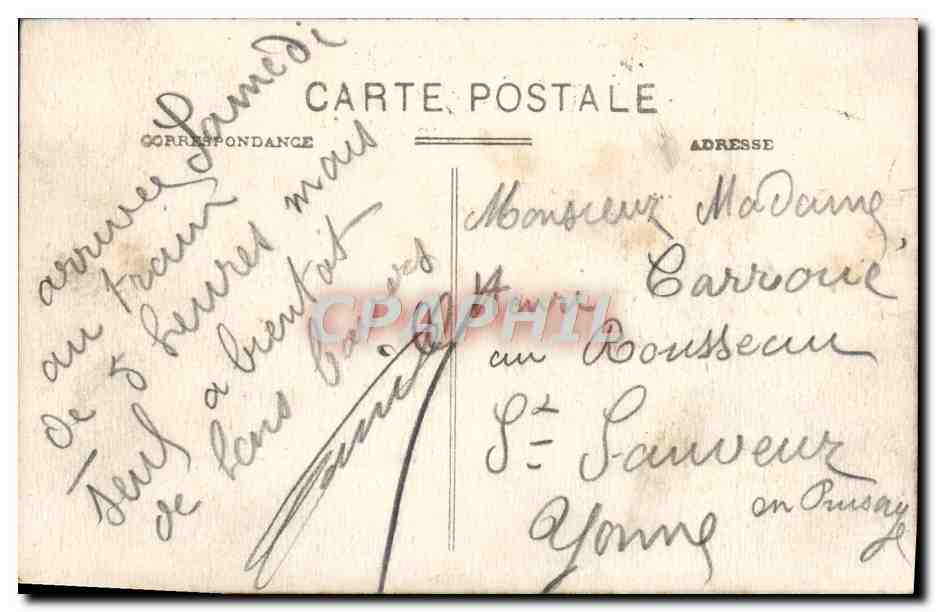 CARTE POSTALE
CORRESPONDANCE
ADRESSE
arrivée Samedi
au train
de 5 heures mais
seul a bientot
de bons baisers
Camille
Monsieur Madame
Henri Carroué
au Rousseau
St Sauveur
en Puisaye
Yonne
CPAPHIL